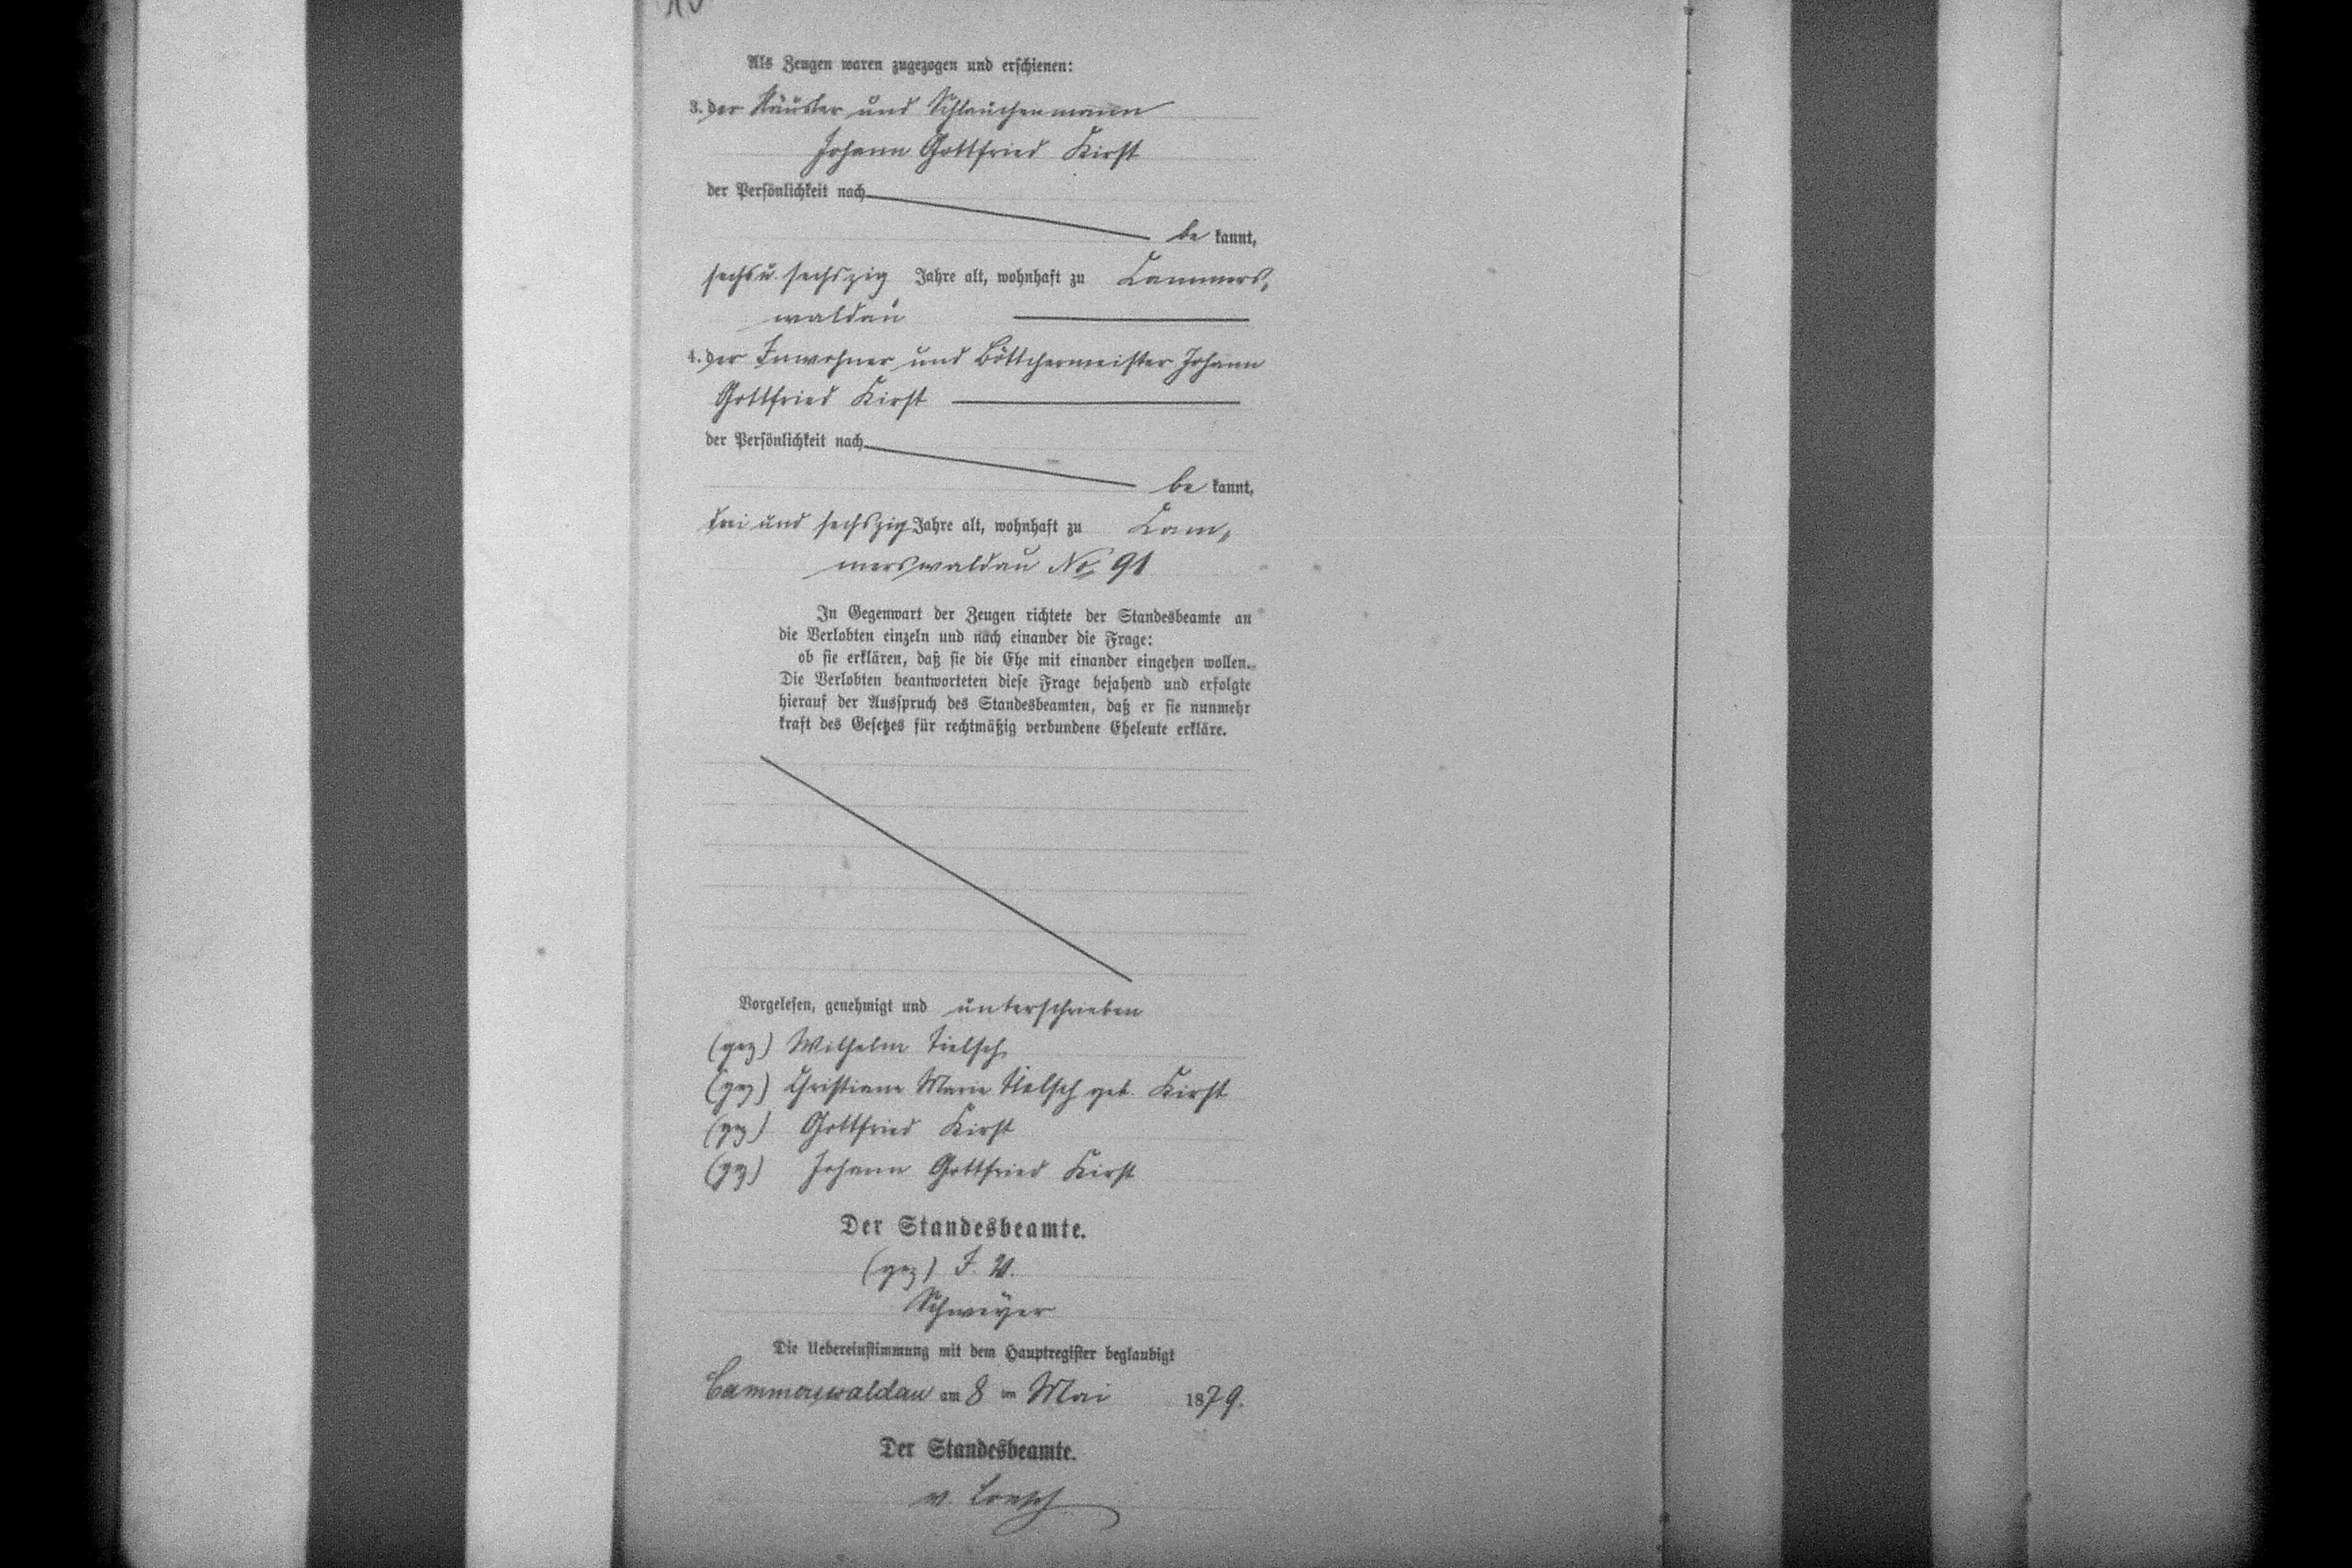 Als Zeugen waren zugezogen und erschienen:
3. der Häusler und
Johann Gottfried Kirst
der Persönlichkeit nach
be kannt,
sechs u. sechszig Jahre alt, wohnhaft zu Cammers-
waldau
4. der Inwohner und Böttchermeister Johann
Gottfried Kirst
der Persönlichkeit nach
be kannt,
drei und sechszig Jahre alt, wohnhaft zu Cam-
merswaldau No 91
In Gegenwart der Zeugen richtete der Standesbeamte an
die Verlobten einzeln und nach einander die Frage:
ob sie erklären, daß sie die Ehe mit einander eingehen wollen.
Die Verlobten beantworteten diese Frage bejahend und erfolgte
hierauf der Ausspruch des Standesbeamten, daß er sie nunmehr
kraft des Gesetzes für rechtmäßig verbundene Eheleute erkläre.
Vorgelesen, genehmigt und unterschrieben
(gez) Wilhelm Tielsch
(gez) Christiane Marie Tielsch geb. Kirst
(gez) Gottfried Kirst
(gez) Johann Gottfried Kirst
Der Standesbeamte.
(gez) I. V.
Schweyer
Die Uebereinstimmung mit dem Hauptregister beglaubigt
Cammerswaldau am 8 ten Mai 1879.
Der Standesbeamte.
v. Loesch